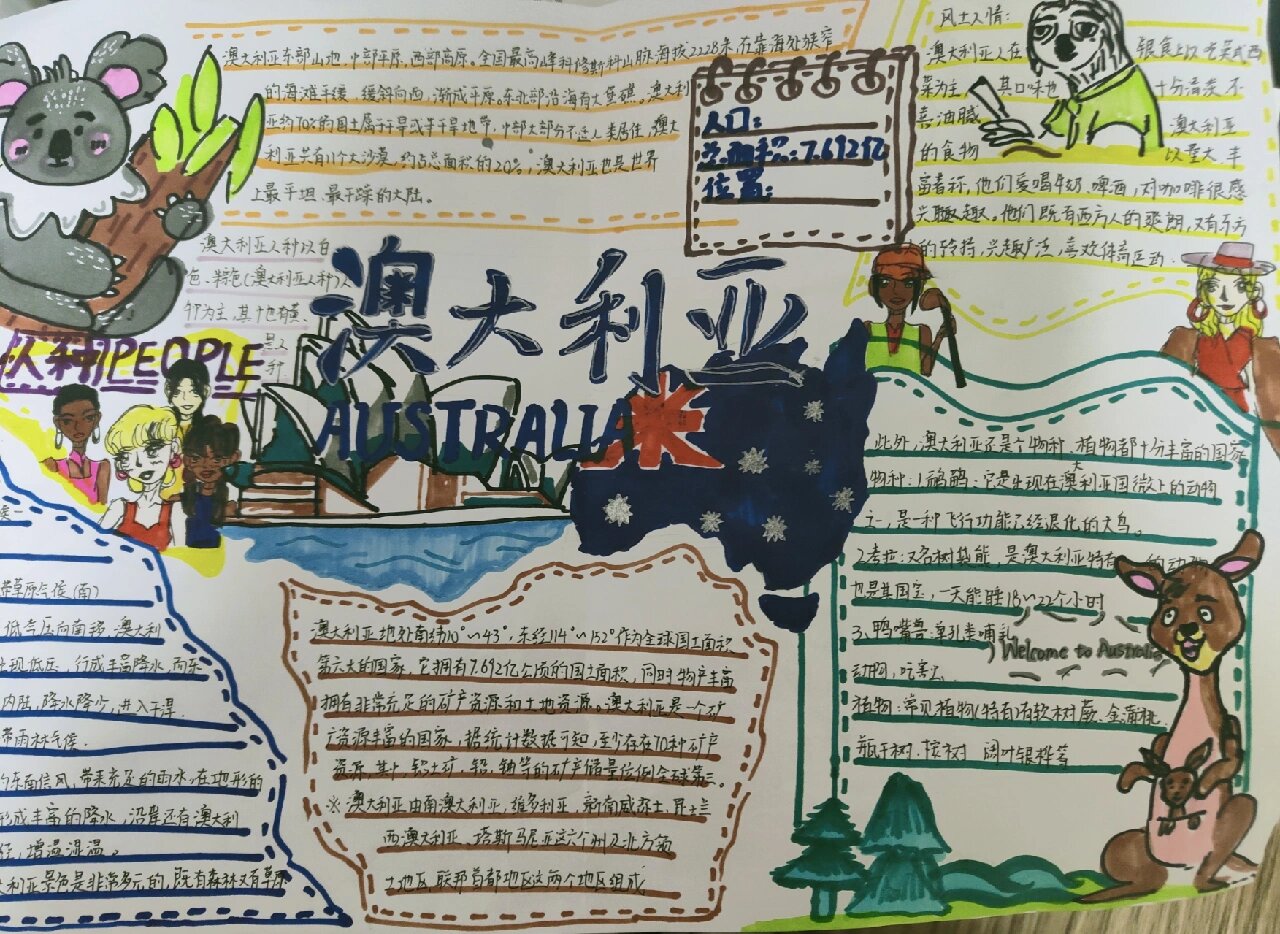 澳大利亚东部山地,中部平原,西部高原。全国最高峰科修斯科山脉海拔2228米,在靠海处狭窄
的海滩平缓,缓斜向西,渐成平原。东北部沿海有大堡礁。澳大利
亚约70%的国土属于干旱或半干旱地带,中部大部分不适人类居住,澳大
利亚共有11个大沙漠,约占总面积的20%,澳大利亚也是世界
上最平坦、最干躁的大陆。
人口:
总面积:7.692亿
位置:
风土人情:
澳大利亚人在 银食上以吃英式西
菜为主 其口味也 十分清淡 不
喜油腻 澳大利亚
的食物 以量大、丰
富着称,他们爱喝牛奶、啤酒,对咖啡很感
兴趣趣。他们既有西方人的爽朗,又有东方
人的矜持,兴趣广泛,喜欢体育运动.
澳大利亚人种以白
色、棕色(澳大利亚人种)人
种为主,其中也有黄、
种
人种PEOPLE
澳大利亚
AUSTRALIA
带草原气候(南)
低气压向南移,澳大利
现低压,行成丰富降水,而东
内陆,降水降少,进入干旱.
带雨林气候.
的东南信风,带来充足的雨水,在地形的
形成丰富的降水,沿岸还有澳大利
增温湿温。
大利亚景色是非常多元的,既有森林又有草原
澳大利亚地处南纬10°~43°,东经114°~152°作为全球国土面积
第六大的国家,它拥有7.692亿公顷的国土面积,同时物产丰富
拥有非常充足的矿产资源和土地资源。澳大利亚是一个矿
产资源丰富的国家,据统计数据可知,至少存在70种矿产
资源,其中,铝土矿、铅、铀等的矿产储量位例全球第一
※澳大利亚由南澳大利亚,维多利亚,新南威尔士,昆士兰
西澳大利亚、塔斯马尼亚这六个州及北方领
土地区、联邦首都地区这两个地区组成
此外,澳大利亚还是个物种、植物都十分丰富的国家
物种:1.鸸鹋:它是出现在澳大利亚国徽上的动物
之一,是一种飞行功能已经退化的大鸟。
2.考拉:又名树袋熊,是澳大利亚特有的动
也是其国宝,一天能睡18~22个小时
3、鸭嘴兽:单孔类哺乳
动物,
Welcome to Australia
植物:常见植物(特有)有软树蕨、金蒲桃、
瓶干树、桉树、阔叶银桦等